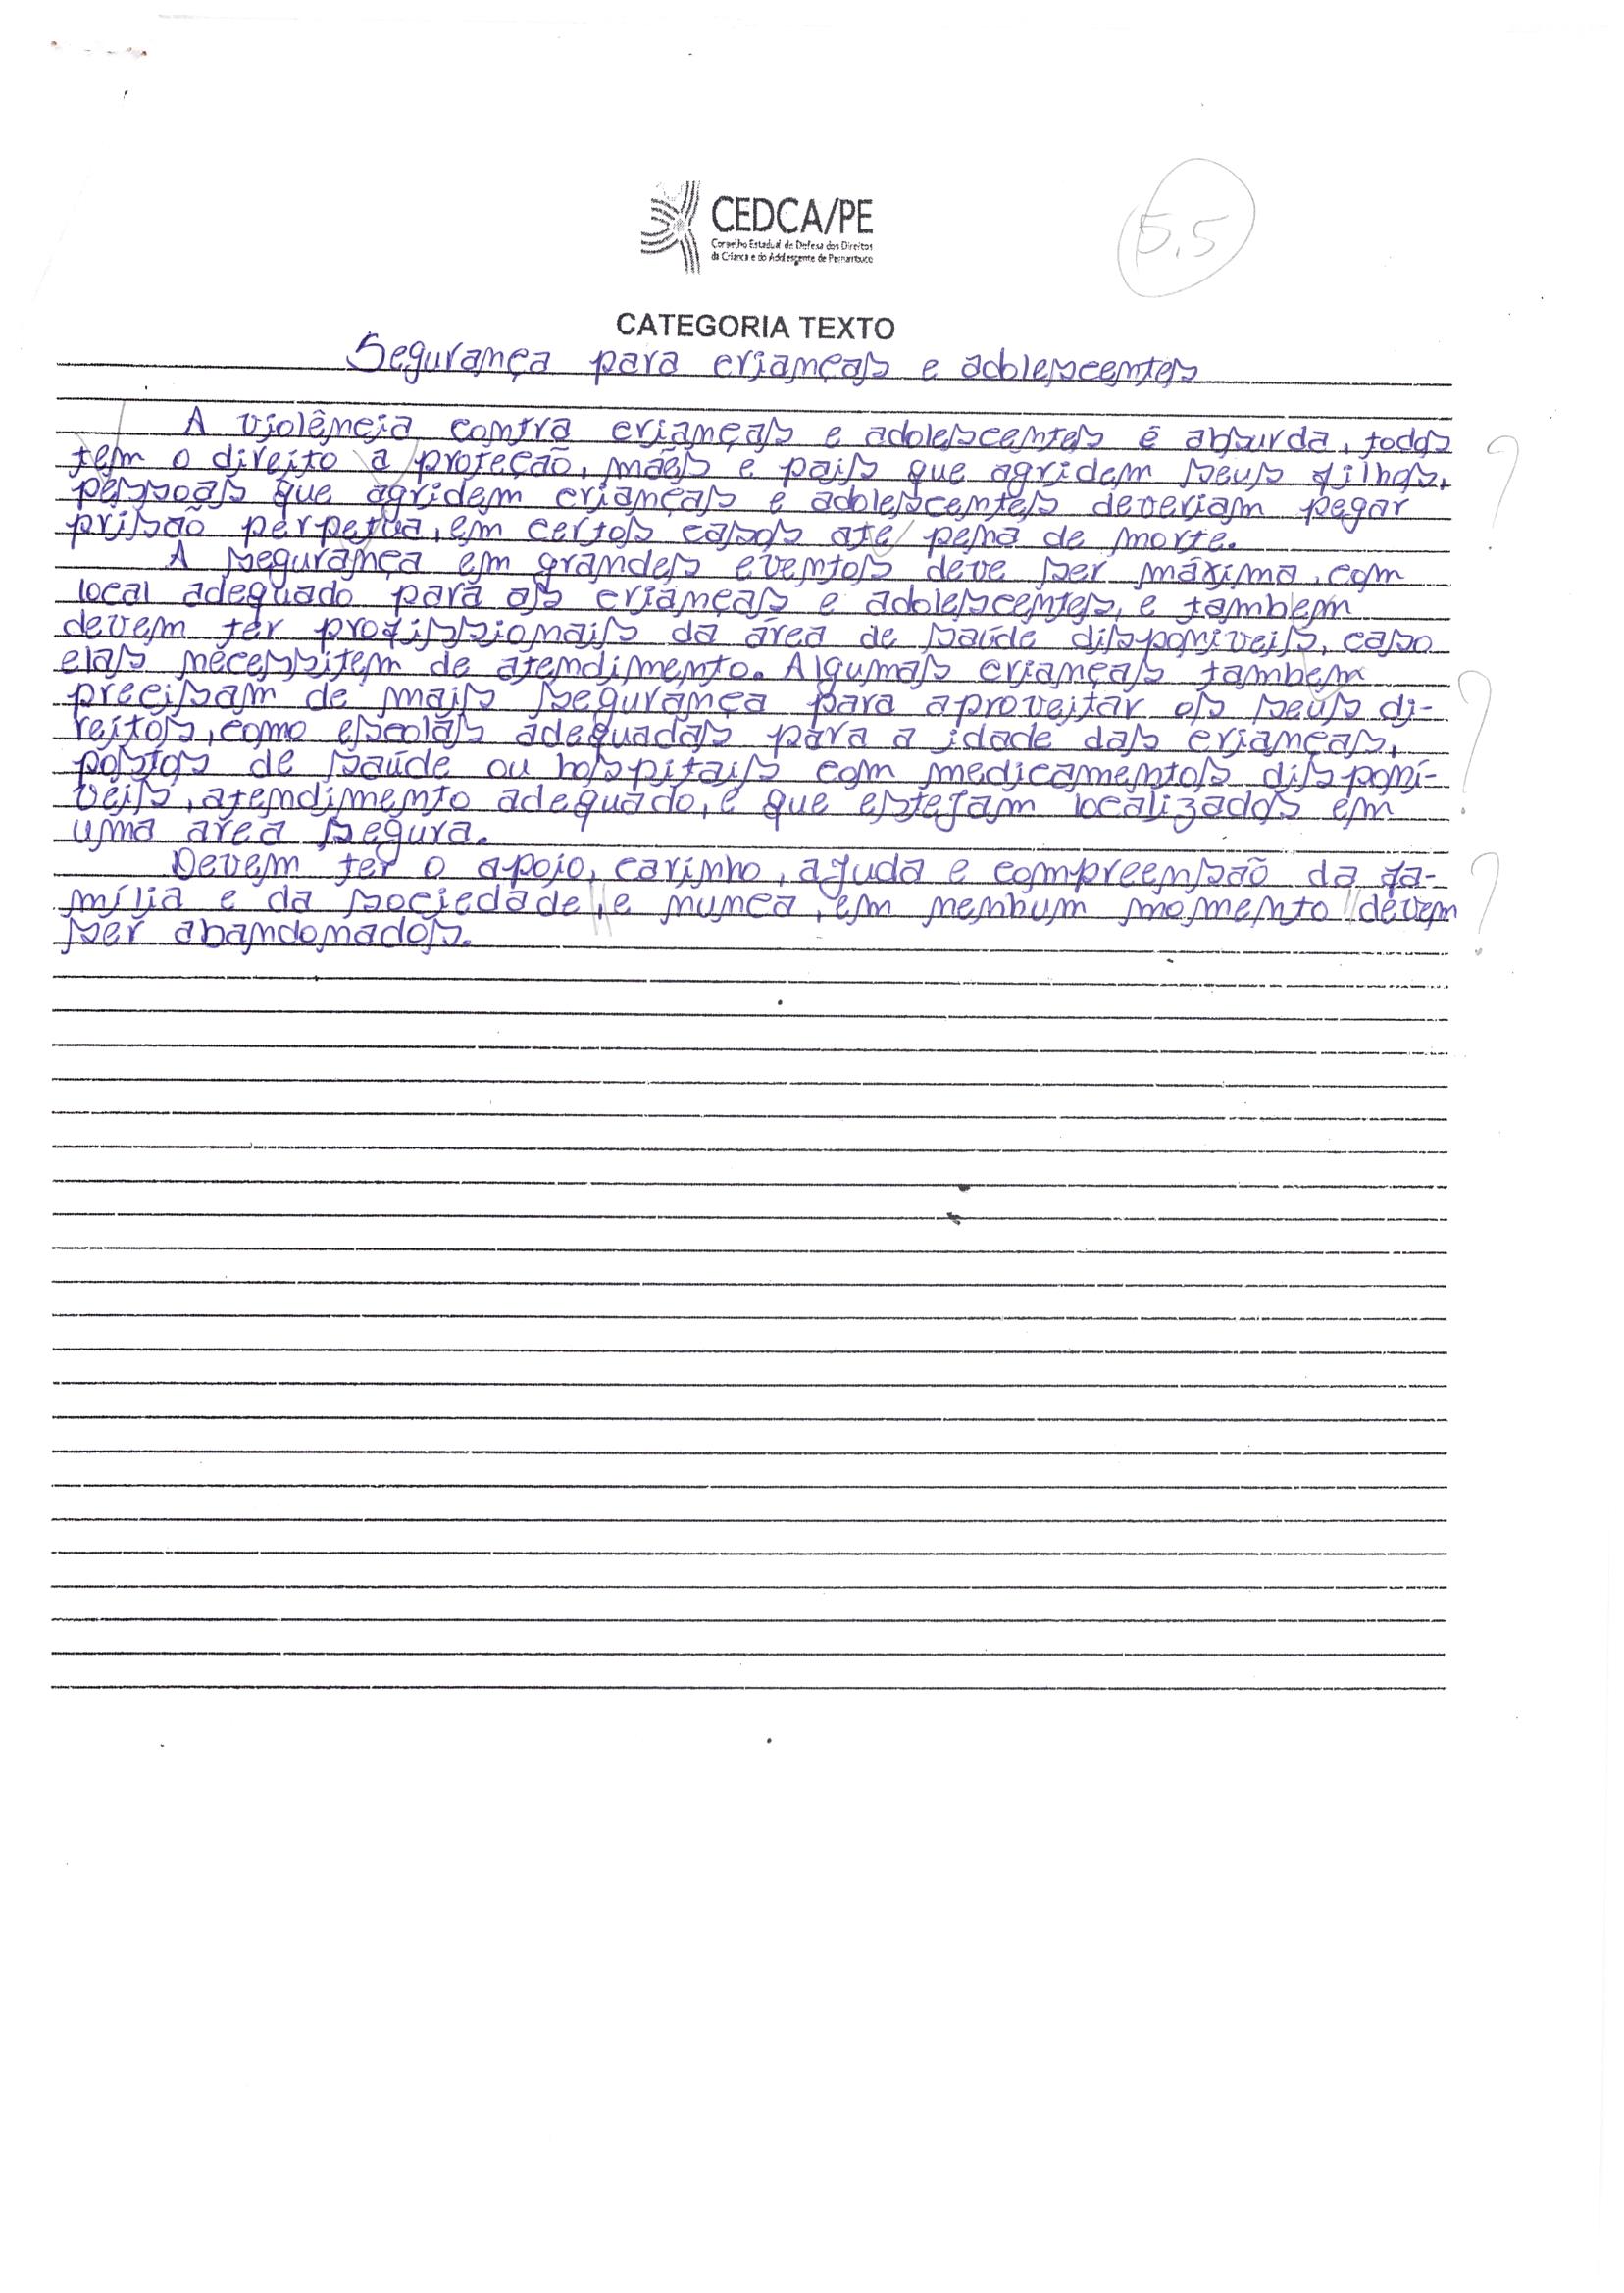 CEDCA/PE
Conselho Estadual de Defesa dos Direitos
da Criança e do Adolescente de Pernambuco
5,5
CATEGORIA TEXTO
Segurança para crianças e adolescentes
A violência contra crianças e adolescentes é absurda, todos
tem o direito a proteção, mães e pais que agridem seus filhos,
pessoas que agridem crianças e adolescentes deveriam pegar
prisão perpetua, em certos casos ate pena de morte.
A segurança em grandes eventos deve ser máxima, com
local adequado para as crianças e adolescentes, e tambem
devem ter profissionais da área de saúde disponiveis, caso
elas necessitem de atendimento. Algumas crianças tambem
precisam de mais segurança para aproveitar os seus di-
reitos, como escolas adequadas para a idade das crianças,
postos de saúde ou hospitais com medicamentos disponí-
veis, atendimento adequado, e que estejam localizados em
uma area segura.
Devem ter o apoio, carinho, ajuda e compreensão da fa-
mília e da sociedade, e nunca, em nenhum momento devem
ser abandonados.
?
?
?